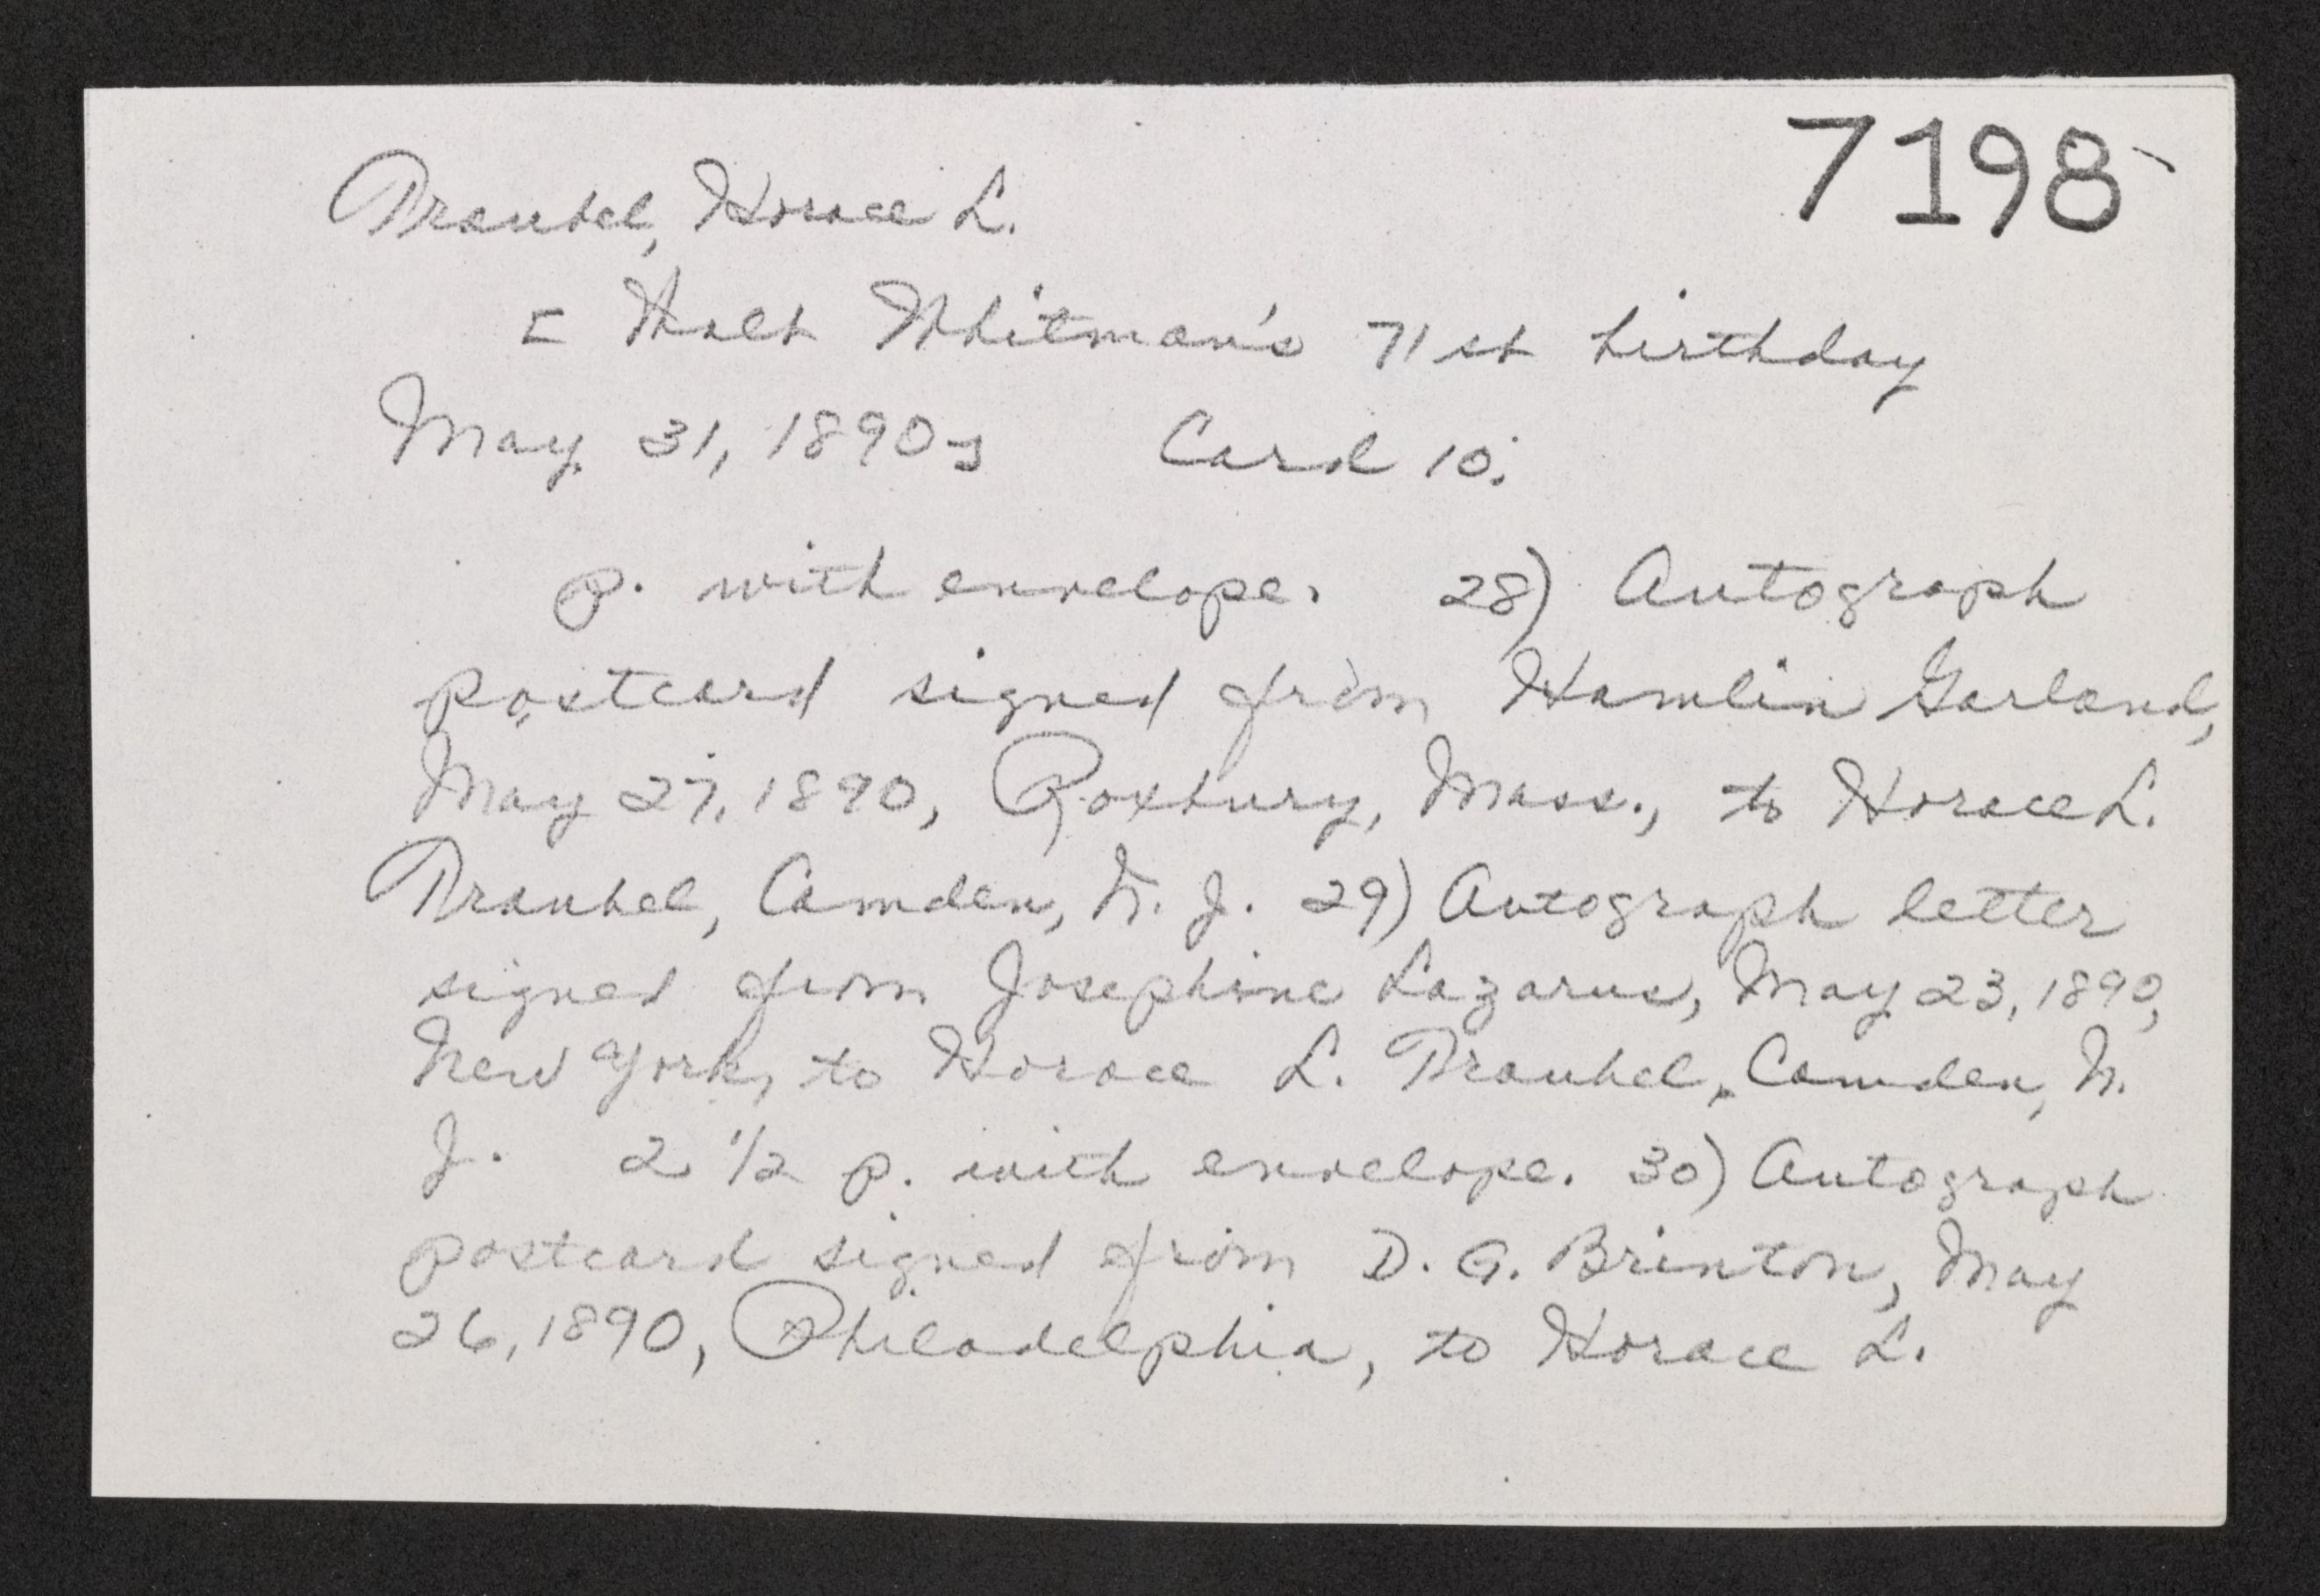 7198
Traubel, Horace L.
[ Walt Whitman's 71st birthday
May 31, 1890] Card 10.
p. with envelope. 28) Autograph
postcard signed from Hamlin Garland,
May 27, 1890, Roxbury, Mass., to Horace L.
Traubel, Camden, N. J. 29) Autograph letter
signed from Josephine Lazarus, May 23, 1890,
New York, to Horace L. Traubel, Camden, N.
J. 2 1/2 p. with envelope. 30) Autograph
postcard signed from D. G. Brinton, May
26, 1890, Philadelphia, to Horace L.